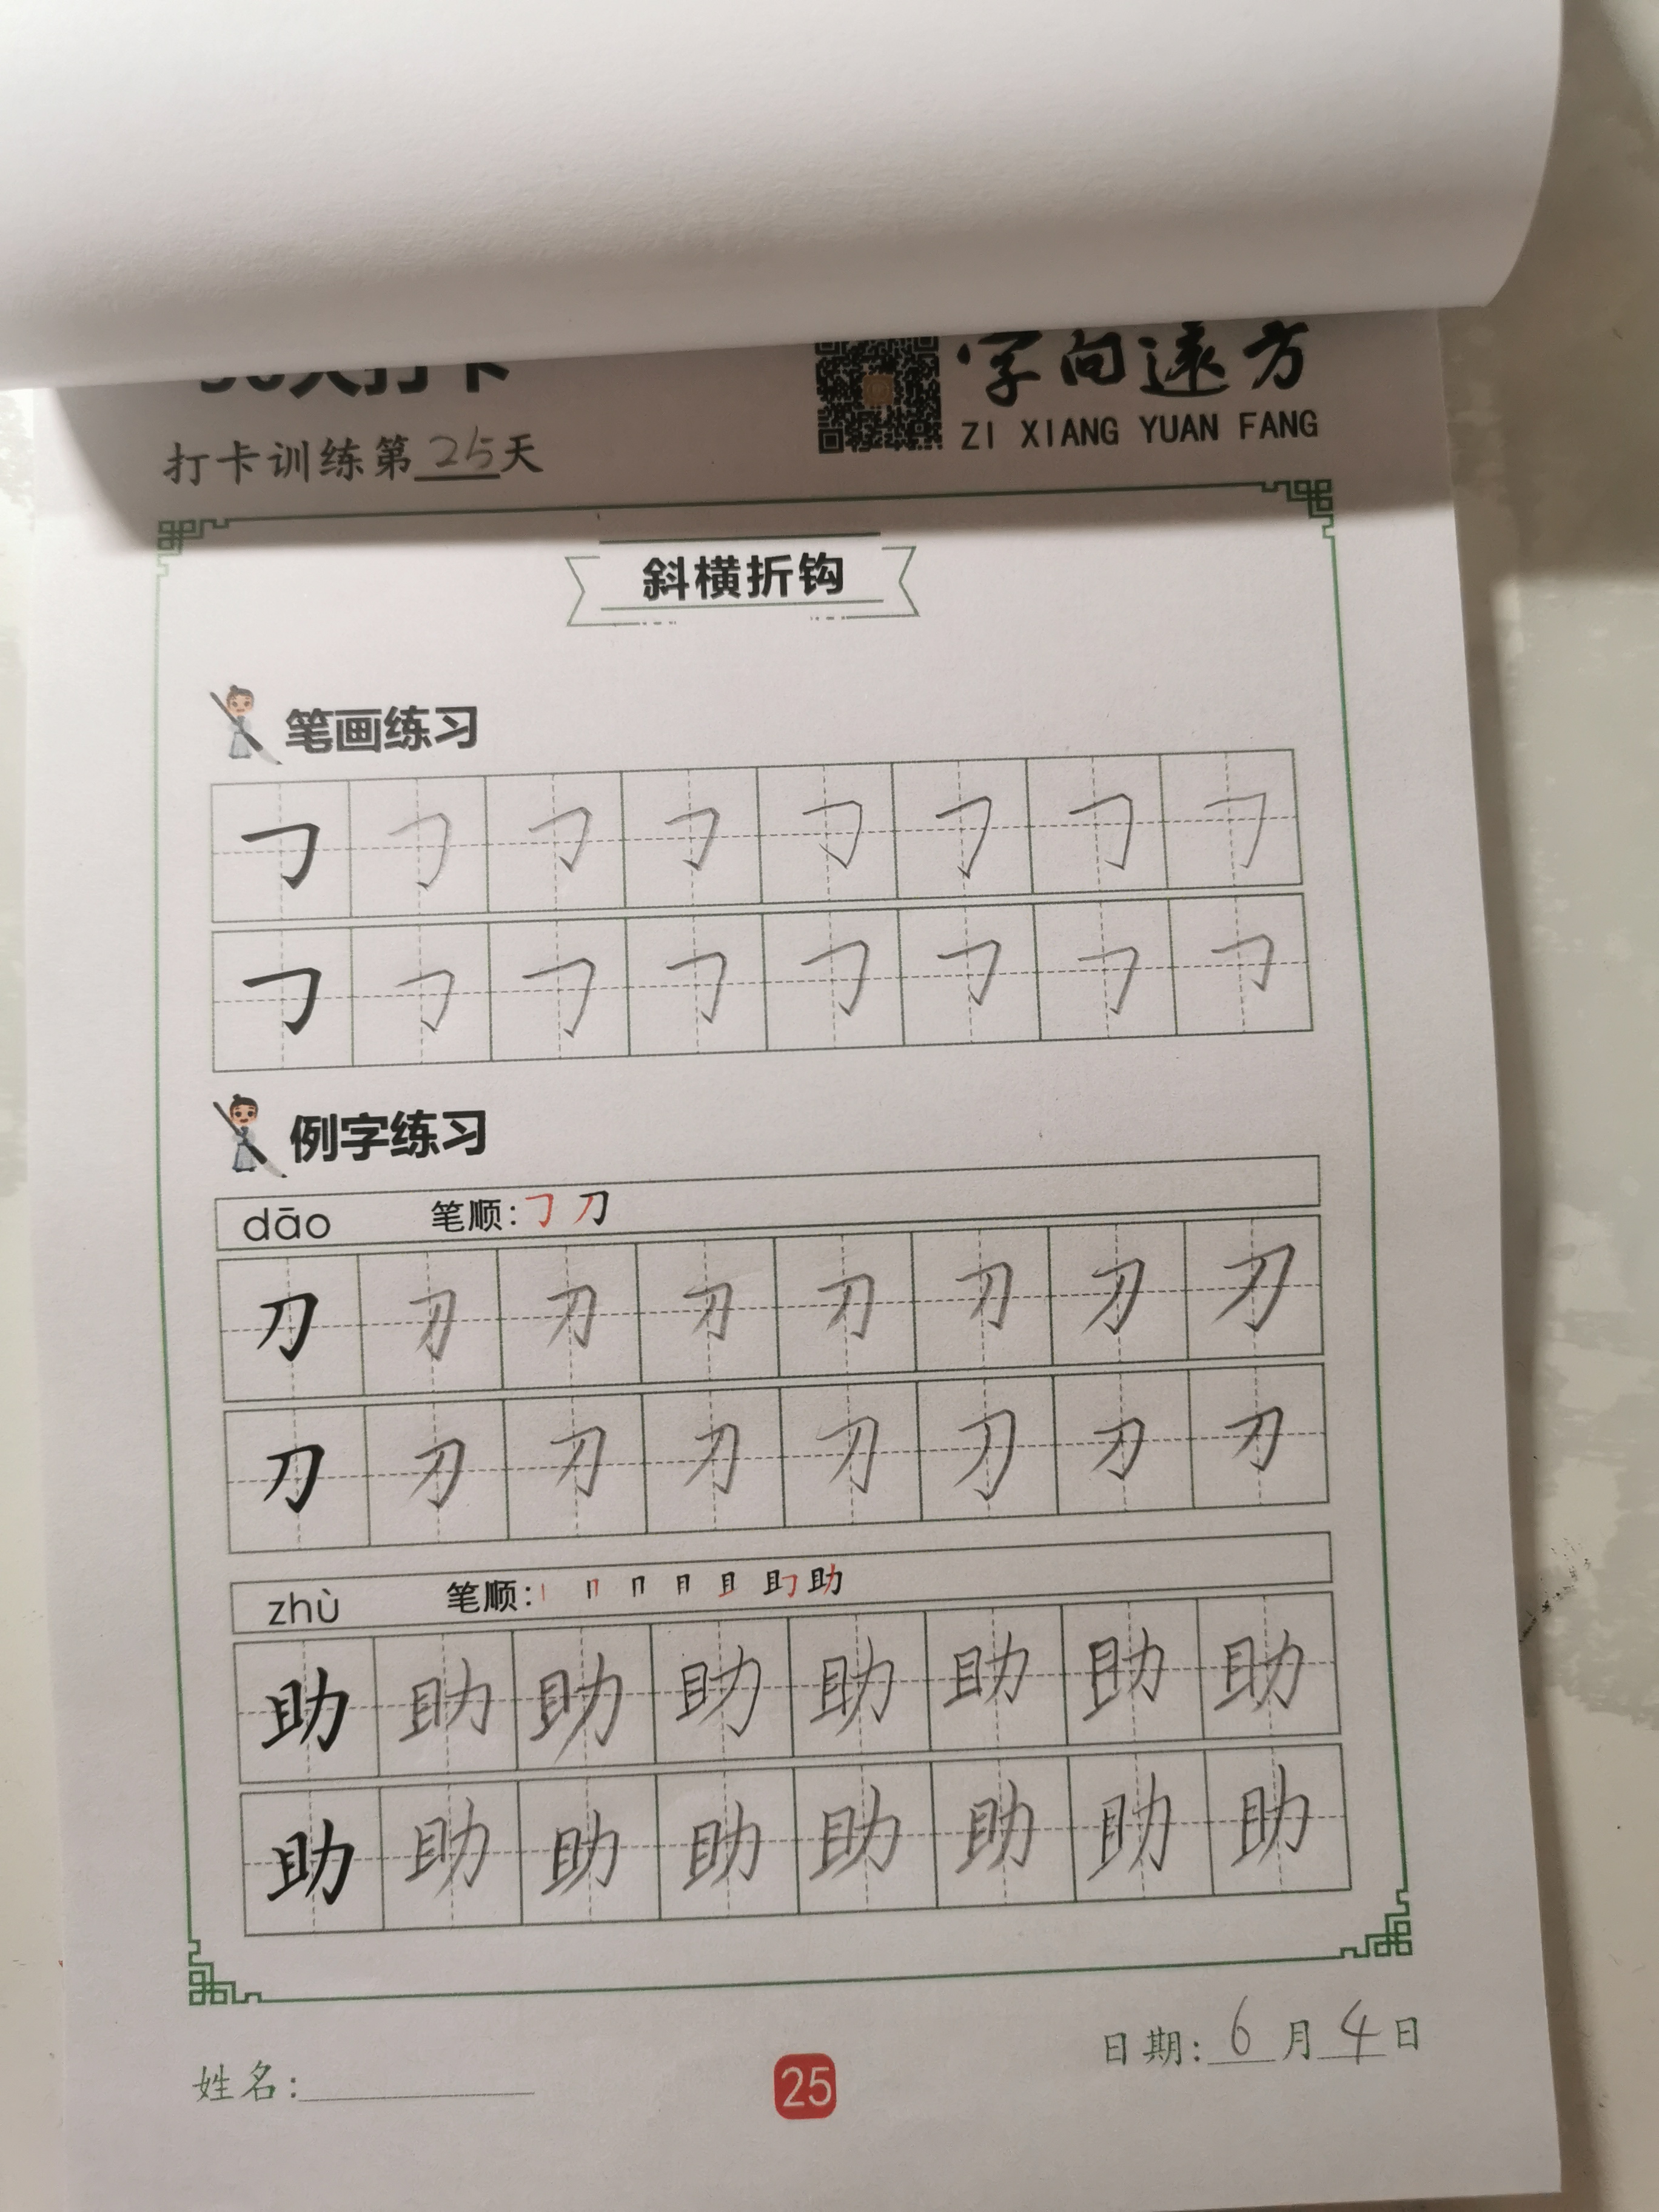 天打卡
字向遠方
ZI XIANG YUAN FANG
打卡训练第25天
斜横折钩
笔画练习
例字练习
dāo 笔顺: 𠃌 刀
刀 刀 刀 刀 刀 刀 刀 刀
刀 刀 刀 刀 刀 刀 刀 刀
zhù 笔顺: 丨 冂 冂 月 且 助
助 助 助 助 助 助 助 助
助 助 助 助 助 助 助 助
姓名:
25
日期: 6月4日